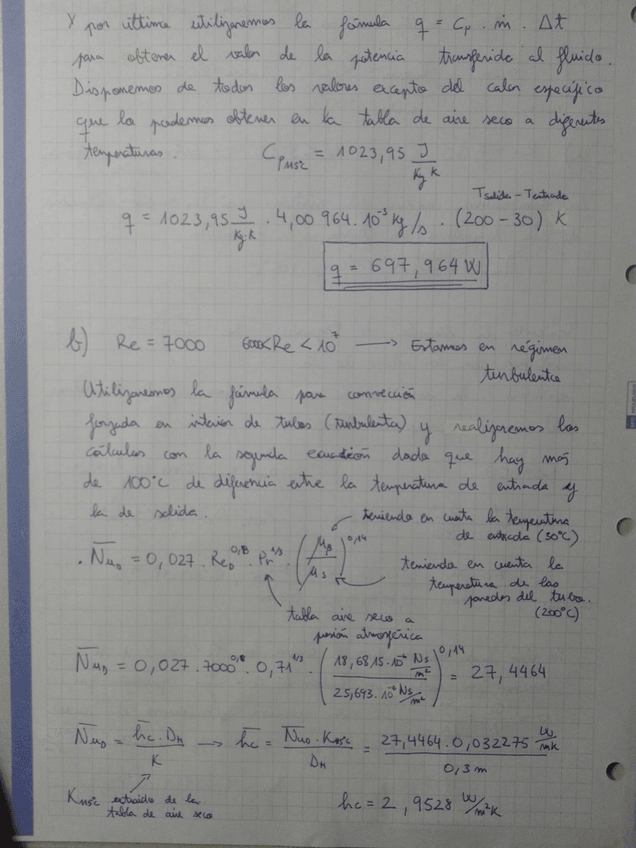 Y por último utilizaremos la fórmula q = Cp . ṁ . Δt
para obtener el valor de la potencia transferida al fluido.
Disponemos de todos los valores excepto del calor específico
que lo podemos obtener en la tabla de aire seco a diferentes
temperaturas. Cp115ºC = 1023,95 J/Kg K
Tsalida - Tentrada
q = 1023,95 J/Kg·K . 4,00 964.10⁻³ kg/s . (200 - 30) K
q = 697,964 W
b) Re = 7000 6000<Re < 10⁷ → Estamos en régimen
turbulento
Utilizaremos la fórmula para convección
forzada en interior de tubos (turbulenta) y realizaremos los
cálculos con la segunda ecuación dado que hay más
de 100°C de diferencia entre la temperatura de entrada y
la de salida.
teniendo en cuenta la temperatura
de entrada (30°C)
. N̅u̅D = 0,027 . ReD^0,8 . Pr^1/3 . (μB/μs)^0,14
teniendo en cuenta la
temperatura de las
paredes del tubo.
(200°C)
tabla aire seco a
presión atmosférica
N̅u̅D = 0,027 . 7000^0,8 . 0,71^1/3 . (18,6815.10⁻⁶ Ns/m² / 25,693.10⁻⁶ Ns/m²)^0,14 = 27,4464
N̅u̅D = h̅c̅ . DH / K → h̅c̅ = N̅u̅D . K115ºC / DH = 27,4464 . 0,032275 W/mK / 0,3 m
K115ºC extraído de la
tabla de aire seco
hc = 2,9528 W/m²K